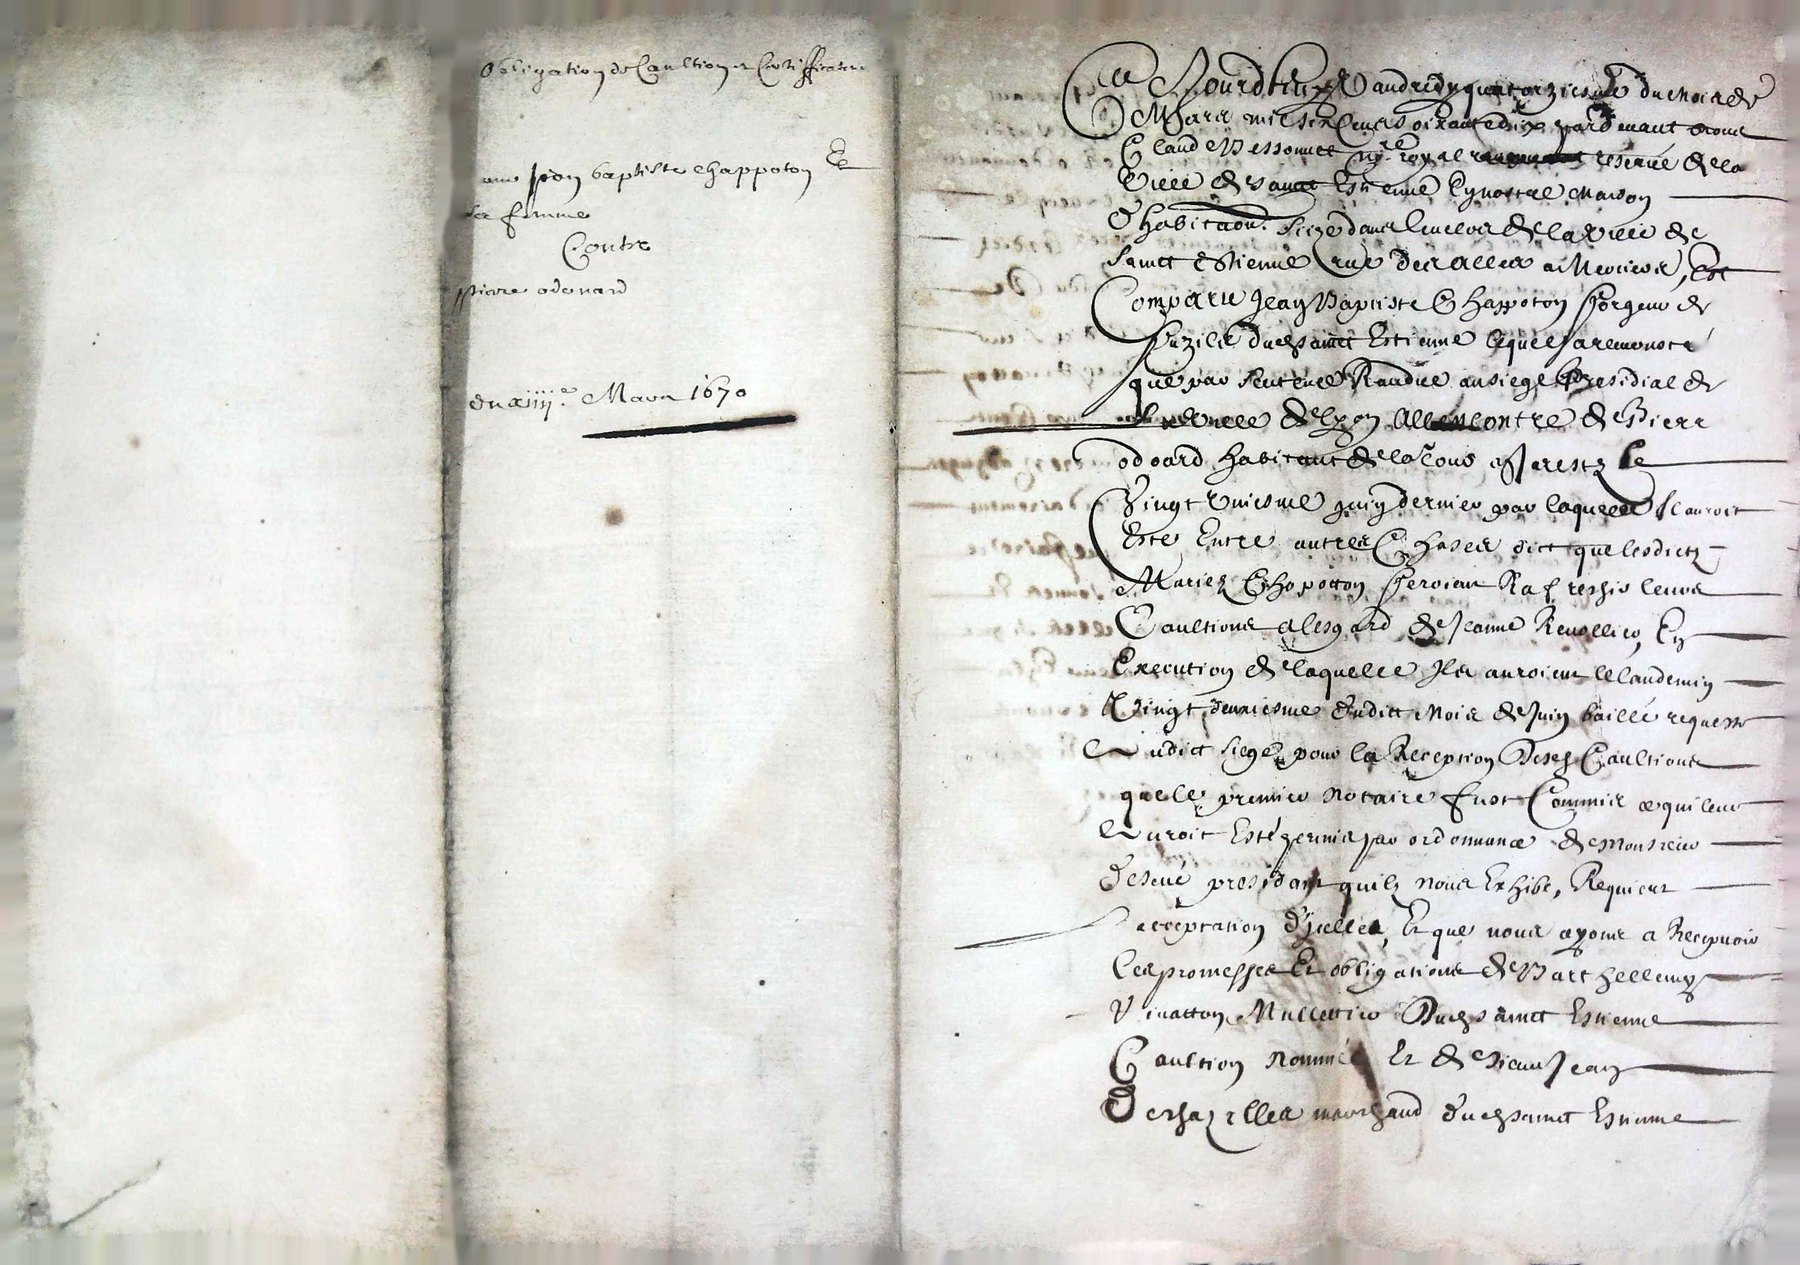 Obligation de Caultion & Certifficateur
pour Jean baptiste Chappoton Et
sa femme
Contre
pierre odouard
du xiiii.e Mars 1670
Ce Jourdhuy Vandredy quatorziesme du mois de
Mars mil six Cens soixante dix par devant Nous
Claude Bessonnet no.re royal reservé de la
Ville de sainct Estienne En nostre maison
d'habitaon. size dans lenclos de la Ville de
sainct Estienne rue des alles a Mercier, Est
Comparu Jean Baptiste Chappoton forgeur de
fuzilz dud sainct Estienne lequel a remonstré
que par sentence Randue au siege presidial de
la Ville de Lyon Allencontre de Pierre
odoard habitant de la Tour en Jarestz le
Vingt Uniesme Juin dernier par laquelle Il auroit
Esté Entre autres Choses dict que lesdictz
Mariez Chapotton feroient Rafreshir leurs
Caultions a lesgard de Jeanne Revollier, En
Execution de laquelle Ilz auroient le landemin
Vingt deuxiesme dudict Mois de Juin baillé requeste
Audict siege pour la Reception Desd Caultions
que le premier Notaire fust Commis ce qui leur
Auroit Esté permis par ordonnance de Monsieur
de sevé president quilz nous Exhibe, Requiert
acceptation d'Icelles, Et que nous ayons a Recepvoir
Les promesses Et obligations de Barthellemy
Vinatton Mullettier Dud sainct Estienne
Caultion Nommée Et de sieur Jean
Deshazelles marchand dud sainct Estienne